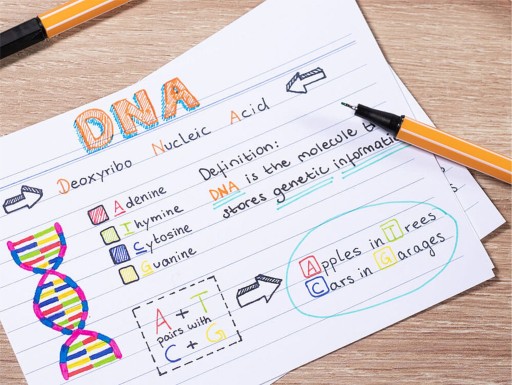 DNA
Deoxyribo Nucleic Acid
Adenine
Thymine
Cytosine
Guanine
Definition:
DNA is the molecule
stores genetic
A + T
pairs with
C + G
Apples in Trees
Cars in Garages